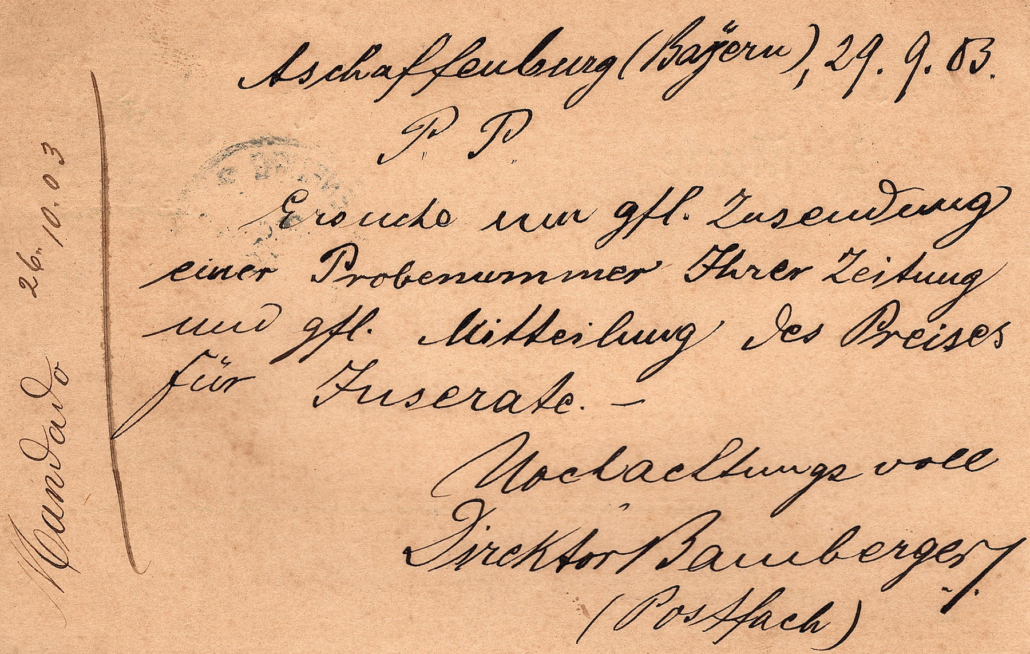 Aschaffenburg (Bayern), 29. 9. 03.
P. P.
Ersuche um gfl. Zusendung
einer Probenummer Ihrer Zeitung
und gfl. Mitteilung des Preises
für Inserate. —
Hochachtungsvoll
Direktor Bamberger
(Postfach)
Mandado 26. 10. 03